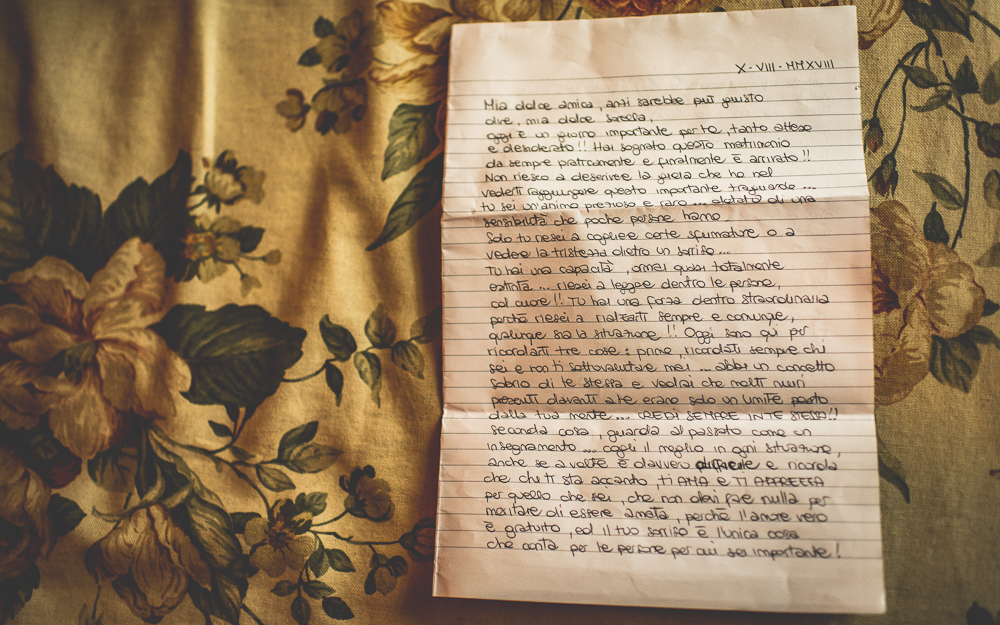 X·VIII·MMXVIII
Mia dolce amica, anzi sarebbe più giusto
dire, mia dolce sorella,
oggi è un giorno importante per te, tanto atteso
e desiderato!! Hai sognato questo matrimonio
da sempre praticamente e finalmente è arrivato!!
Non riesco a descrivere la gioia che ho nel
vederti raggiungere questo importante traguardo...
tu sei un'anima preziosa e rara... dotata di una
sensibilità che poche persone hanno.
Solo tu riesci a cogliere certe sfumature o a
vedere la tristezza dietro un sorriso...
Tu hai una capacità, ormai quasi totalmente
estinta... riesci a leggere dentro le persone,
col cuore!! Tu hai una forza dentro straordinaria
perchè riesci a rialzarti sempre e comunque,
qualunque sia la situazione!! Oggi sono qui per
ricordarti tre cose: prima, ricordati sempre chi
sei e non ti sottovalutare mai... abbi un concetto
sobrio di te stessa e vedrai che molti muri
presenti davanti a te erano solo un limite posto
dalla tua mente.... CREDI SEMPRE IN TE STESSA!!
seconda cosa, guarda al passato come un
insegnamento.... cogli il meglio in ogni situazione,
anche se a volte è davvero difficile e ricorda
che chi ti sta accanto, TI AMA e TI APPREZZA
per quello che sei, che non devi fare nulla per
meritare di essere amata, perchè l'amore vero
è gratuito, ed il tuo sorriso è l'unica cosa
che conta per le persone per cui sei importante!